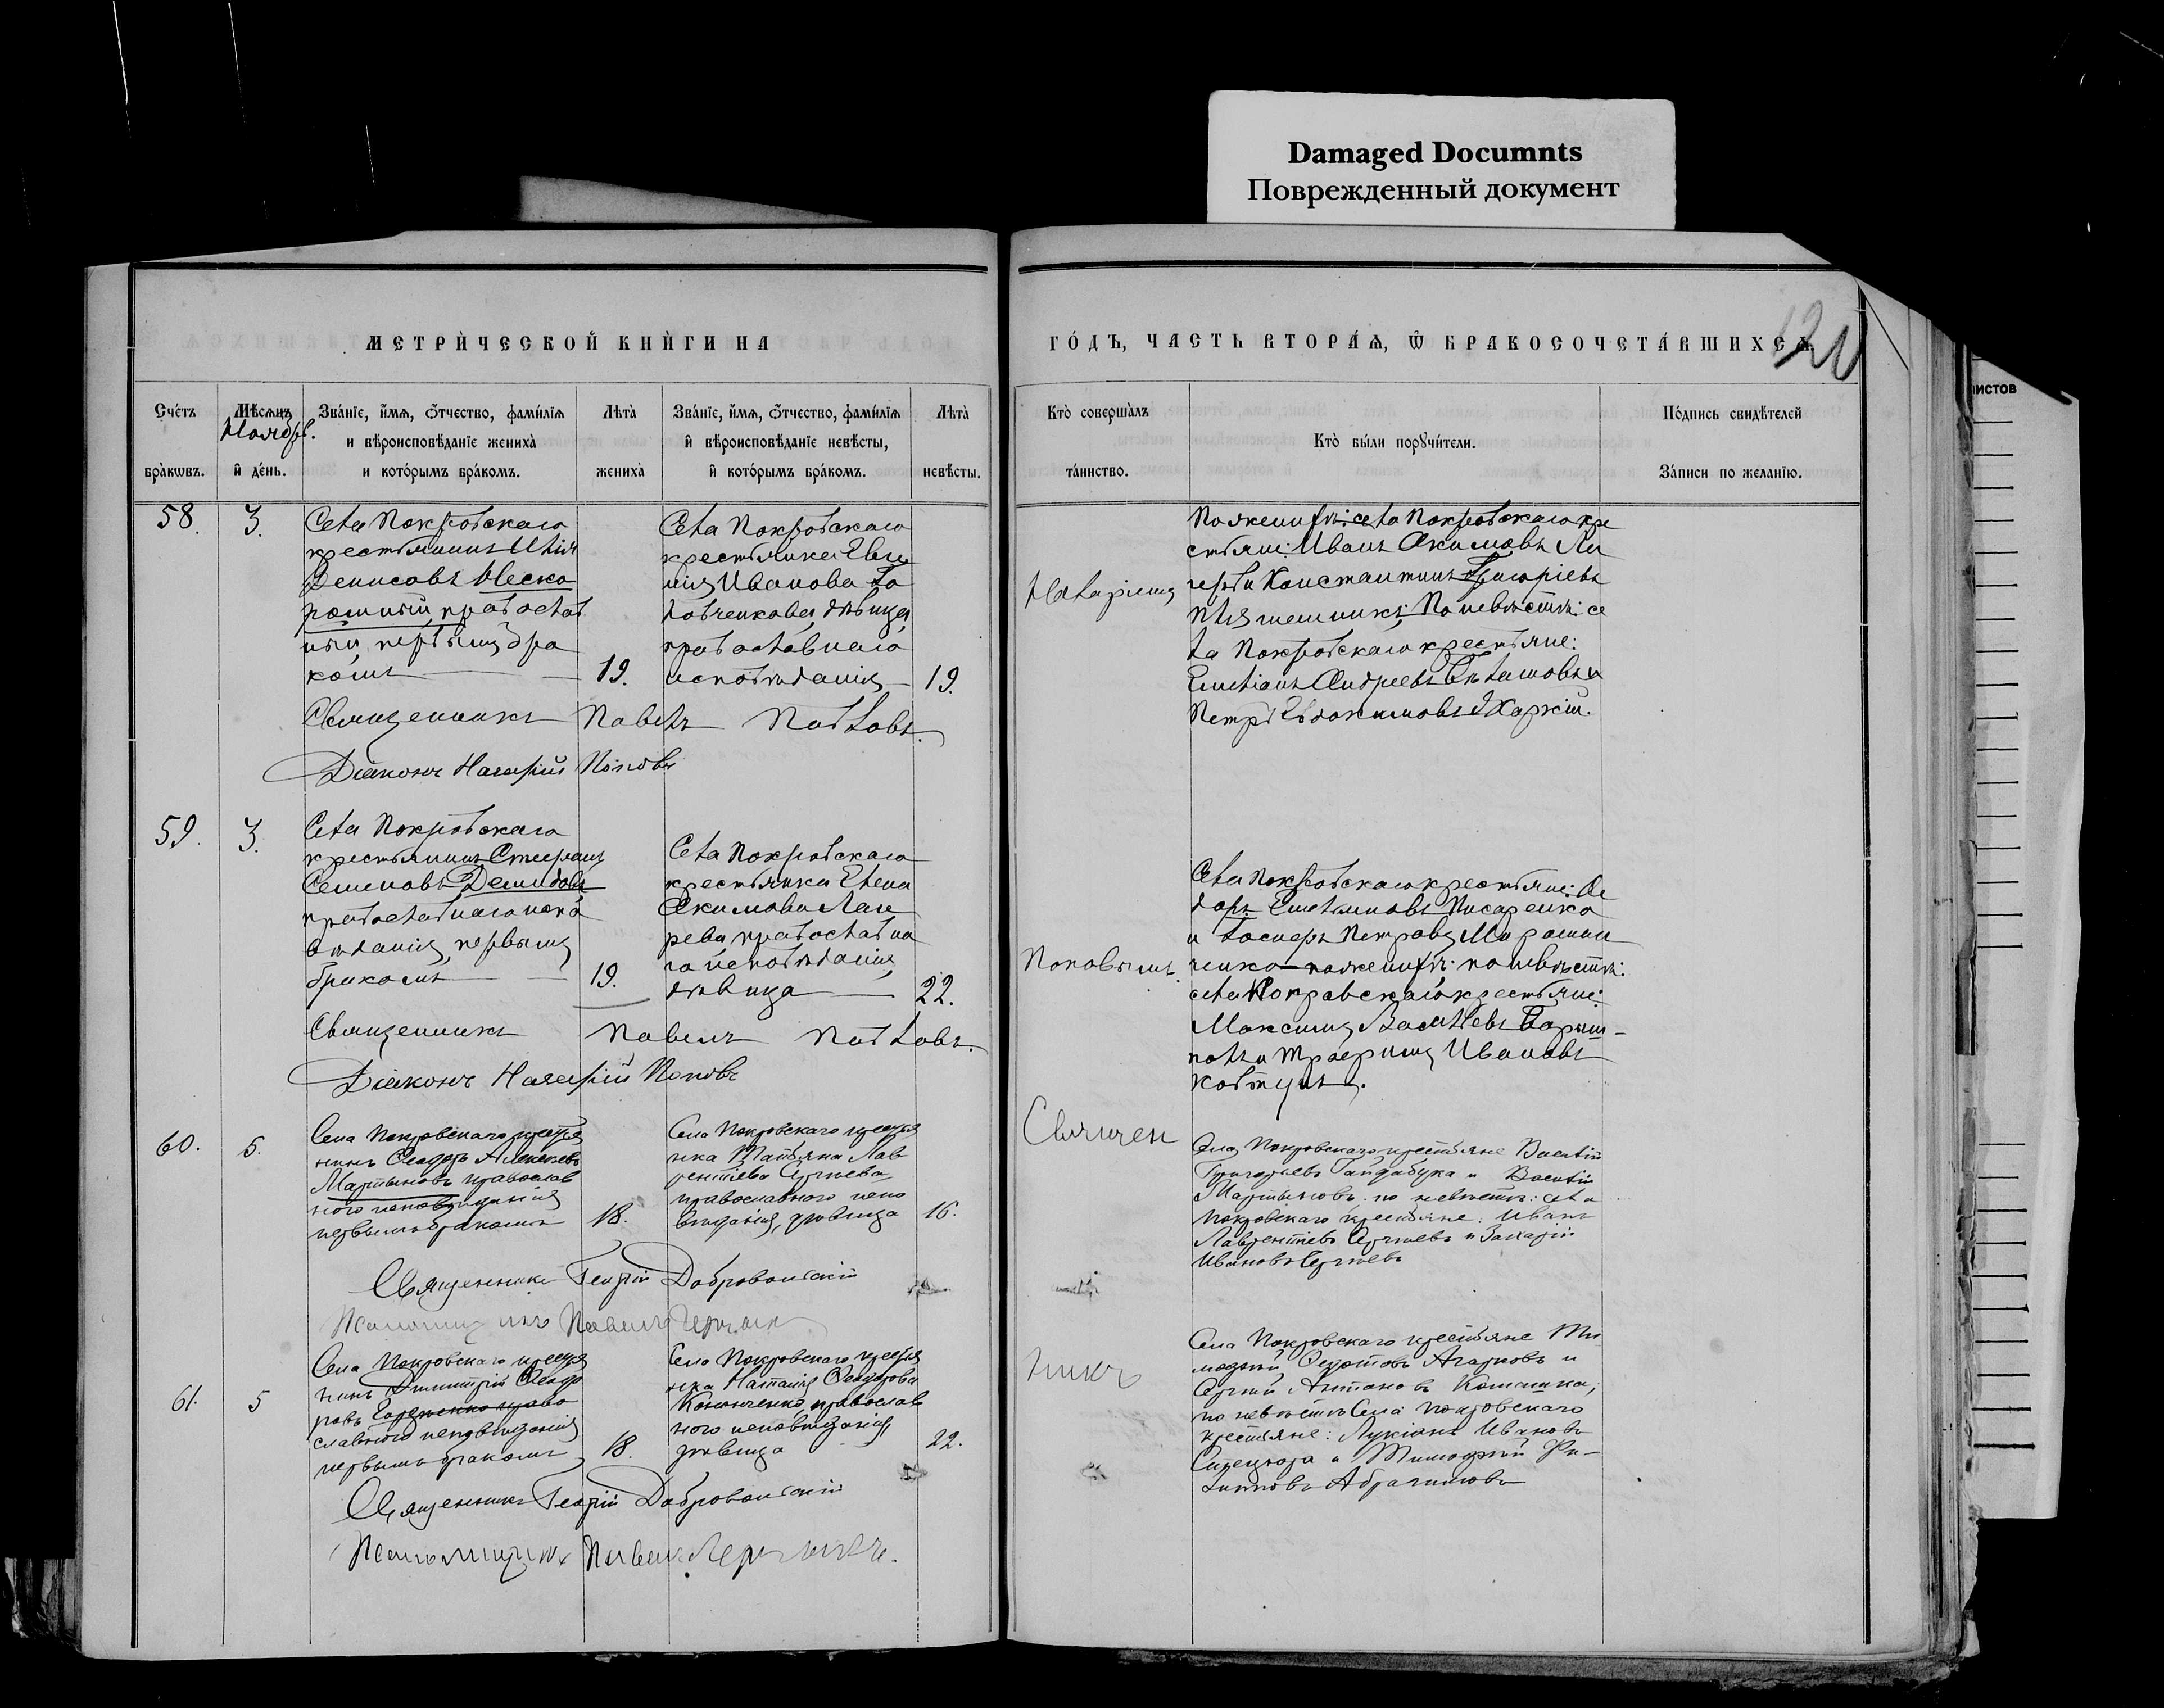 Damaged Documnts
Поврежденный документ
МЕТРИ́ЧЕСКОЙ КНИ́ГИ НА
ГО́ДЪ, ЧАСТЬ ВТОРА́Я, Ѿ БРАКОСОЧЕТА́ВШИХСЯ
120
листов
Сче́тъ
бра́кωвъ.
Мѣ́сяцъ
Ноябрь.
и҆ де́нь.
Зва́нїе, и҆́мѧ, ѻ҆́тчество, фами́лїѧ
и вѣроисповѣ́данїе жениха̀
и кото́рымъ бра́комъ.
Лѣ́та
жениха̀
Зва́нїе, и҆́мѧ, ѻ҆́тчество, фами́лїѧ
и҆ вѣроисповѣ́данїе невѣ́сты,
и҆ кото́рымъ бра́комъ.
Лѣ́та
невѣ́сты.
Кто̀ соверша́лъ
та́инство.
Кто̀ бы́ли порꙋчи́тели.
По́дпись свидѣ́телей
За́писи по жела́нїю.
58.
3.
Села Покровскаго
крестьянинъ Илія
Денисовъ Неско
ромный, православ
ный, первымъ бра
комъ
19.
Села Покровскаго
крестьянка Евге
нія Иванова Го
ловченкова, дѣвица
православнаго
исповѣданія
19.
По женихѣ: села Покровскаго кре
стьяне: Иванъ Акимовъ Ла
Константинъ Григоріевъ
По невѣстѣ: се
ла Покровскаго крестьяне:
Емеліанъ Андреевъ
Петръ Евдокимовъ
Священникъ Павелъ Павловъ.
Діаконъ Назарій Поповъ
59.
3.
Села Покровскаго
крестьянинъ Стефанъ
Семеновъ Демидовъ
православнаго испо
вѣданія, первымъ
бракомъ
19.
Села Покровскаго
крестьянка Елена
Акимова Лазе
рева, православна
го исповѣданія,
дѣвица
22.
Поповымъ
Села Покровскаго крестьяне: Ѳе
доръ Емельяновъ Писаренко
и Петровъ Мирошни
ченко по женихѣ: по невѣстѣ:
села Покровскаго крестьяне:
Максимъ Васильевъ
и Трофимъ Ивановъ
Ковтунъ.
Священникъ Павелъ Павловъ.
Діаконъ Назарій Поповъ
60.
5.
Села Покровскаго крестья
нинъ Ѳеодоръ Алексѣевъ
Мартыновъ православ
наго исповѣданія
первымъ бракомъ
18.
Села Покровскаго крестья
нка Татьяна Лав
рентіева Сергѣева
православнаго испо
вѣданія, дѣвица
16.
Священ
Села Покровскаго крестьяне Василій
Григорьевъ Гайдабука и Василій
Мартыновъ. по невѣстѣ: села
Покровскаго крестьяне: Иванъ
Лаврентіевъ Сергѣевъ и Захарій
Ивановъ Сергѣевъ
Священникъ Георгій Добровольскій
Псаломщикъ Павелъ
61.
5
Села Покровскаго крестья
нинъ Димитрій Ѳеодо
ровъ право
славнаго исповѣданія
первымъ бракомъ
18.
Села Покровскаго крестья
нка Наталія Ѳеодорова
Кононченко, православ
наго исповѣданія,
дѣвица
22.
никъ
Села Покровскаго крестьяне Ти
моѳей Агарковъ и
Сергій Антоновъ
по невѣстѣ Села Покровскаго
крестьяне: Лукіанъ Ивановъ
и Тимоѳей Фи
липповъ
Священникъ Георгій Добровольскій
Псаломщикъ Павелъ